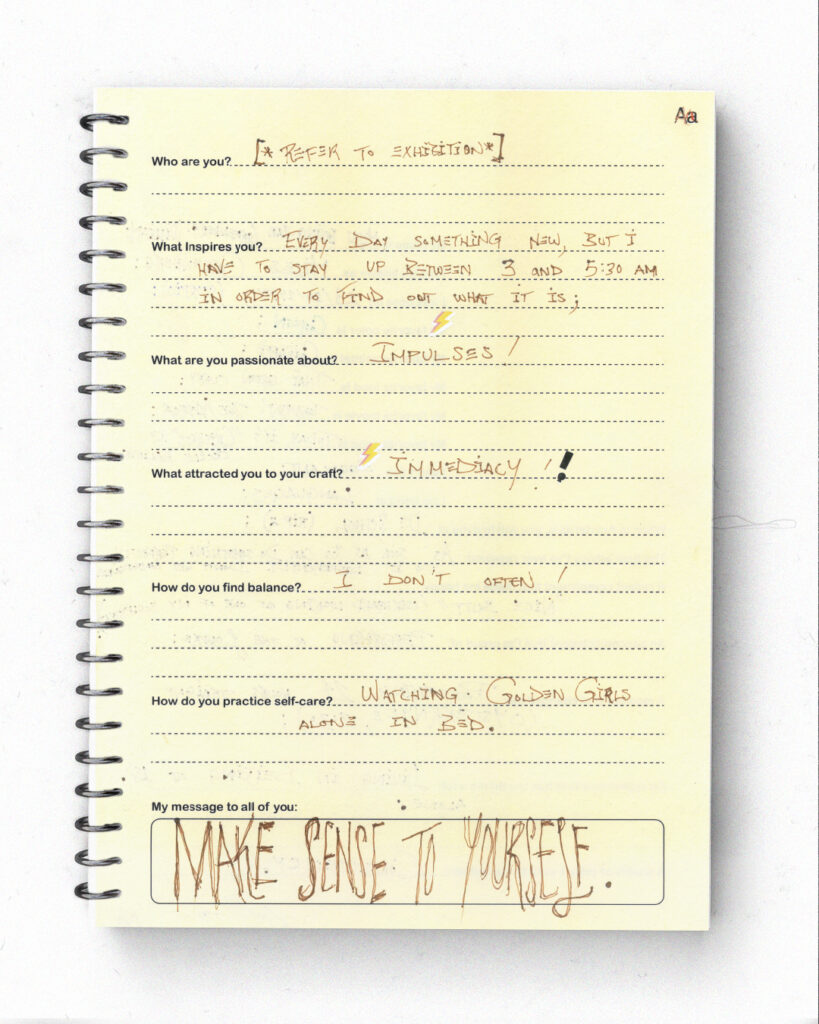 Aa
Who are you? [*REFER TO EXHIBITION*]
What Inspires you? EVERY DAY SOMETHING NEW, BUT I
HAVE TO STAY UP BETWEEN 3 AND 5:30 AM
IN ORDER TO FIND OUT WHAT IT IS;
What are you passionate about? IMPULSES!
What attracted you to your craft? IMMEDIACY!!
How do you find balance? I DON'T OFTEN!
How do you practice self-care? WATCHING GOLDEN GIRLS
ALONE IN BED.
My message to all of you:
MAKE SENSE TO YOURSELF.